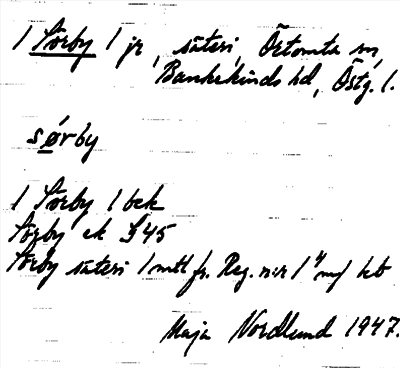 1 Sörby 1 jr, säteri, Örtomta sn,
Bankekinds hd, Östg. l.
sørby
1 Sörby 1 bek
Sörby ek S45
Sörby säteri 1 mtl fr. Reg. n:r 1
Maja Nordlund 1947.